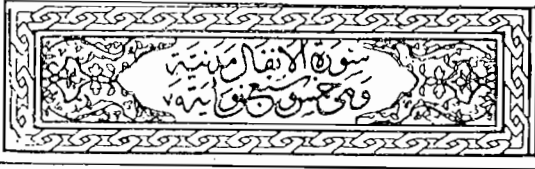 سورة الانفال مدنية
وهى خمس وسبعون اية